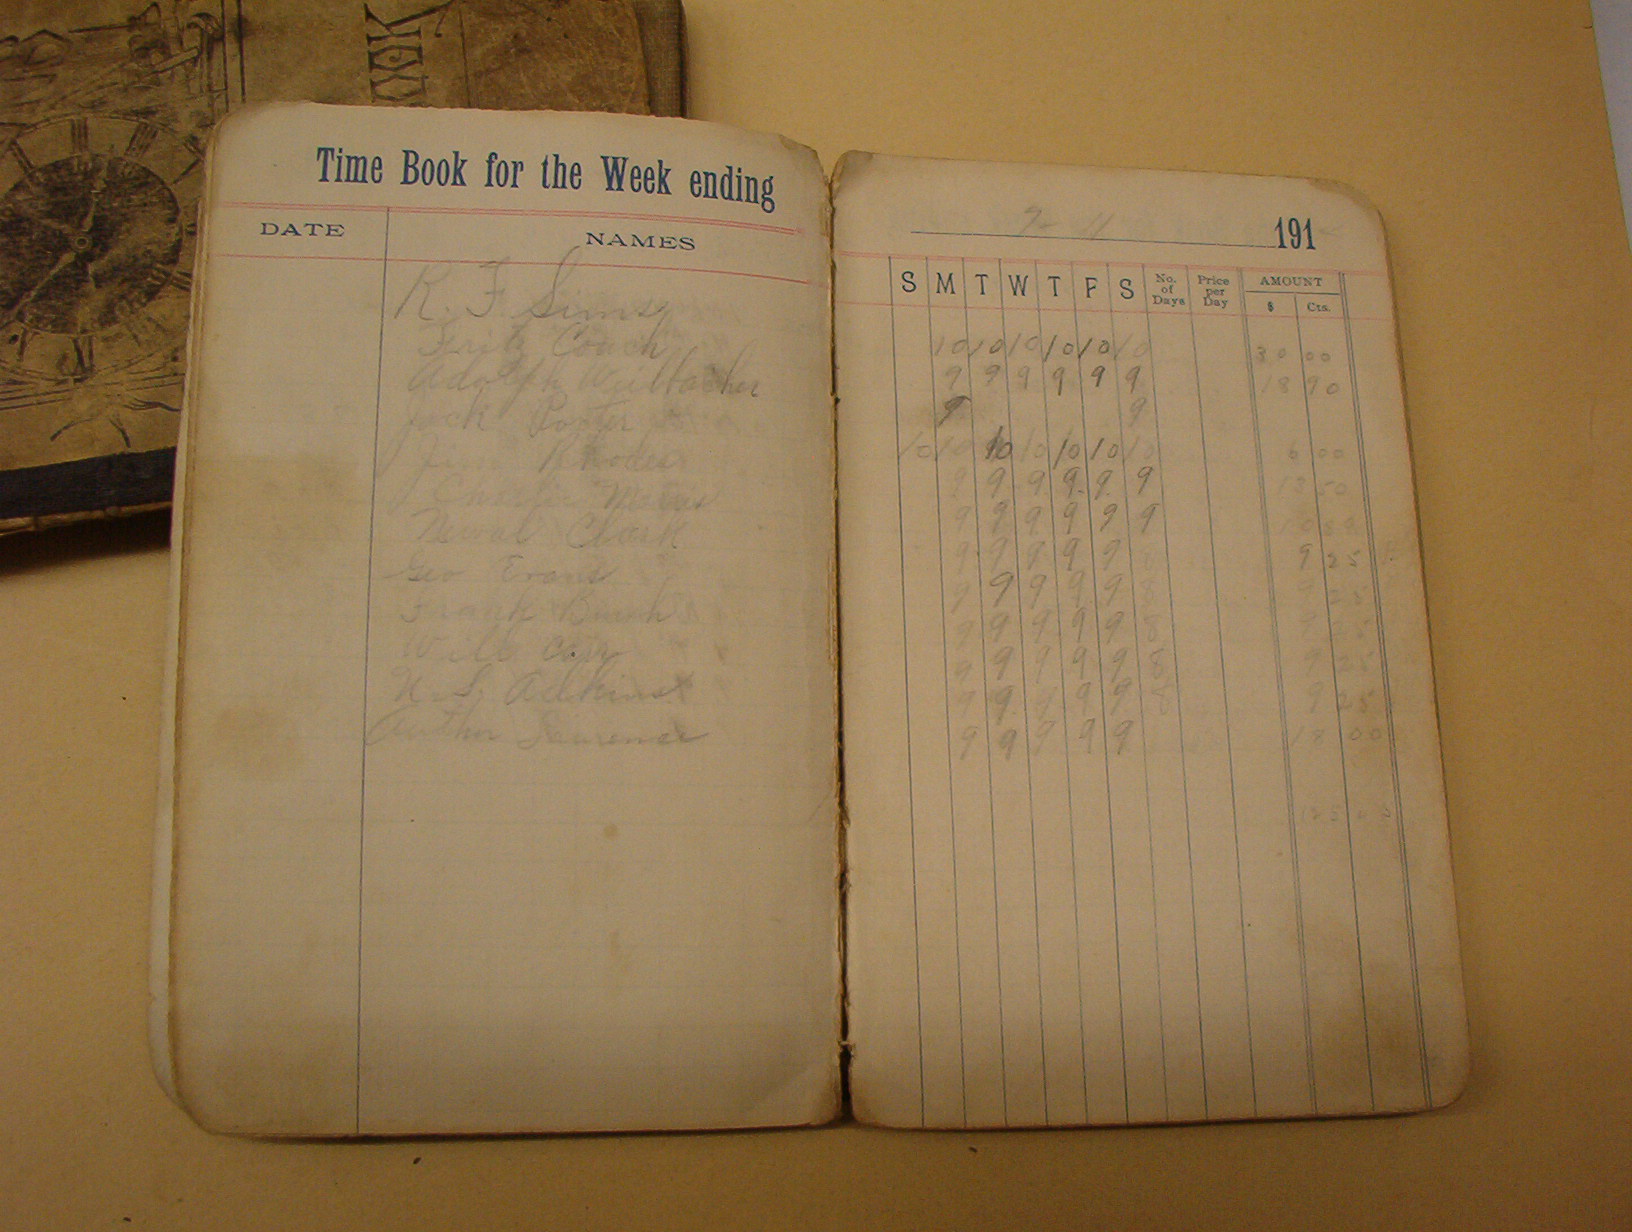 OOK
Time Book for the Week ending
DATE NAMES
R. F. Sims
Fritz Couch
Adolph
Jack Porter
Jim Rhodes
Charlie
Newal Clark
Geo Evans
Frank
Will
N. L. Adkins
Author
9- 11 191
S M T W T F S No. of Days Price per Day AMOUNT
$ Cts.
10 10 10 10 10 10 30 00
9 9 9 9 9 9 18 90
9 9
10 10 10 10 10 10 10 6 00
9 9 9 9 9 9 13 50
9 9 9 9 9 9
9 9 9 9 9 8 9 25
9 9 9 9 9 8 9 25
9 9 9 9 9 8 25
9 9 9 9 9 8 9 25
9 9 9 9 9 8 9 25
9 9 9 9 9 18 00